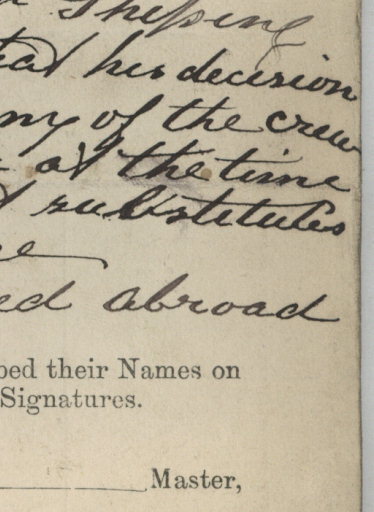 Shipping
his decision
ny of the crew
at the time
substitutes
ed abroad
bed their Names on
Signatures.
Master,